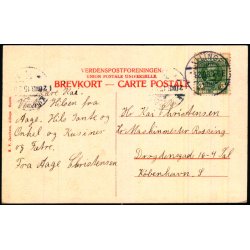 VERDENSPOSTFORENINGEN
UNION POSTALE UNIVERSELLE
BREVKORT — CARTE POSTALE
Kære Kai.
Venlig Hilsen fra
Aage. Hils Tante og
Onkel og Kusiner
og Fætre.
Fra Aage Christensen
Hr Kai Christensen
Hr Maschinmester Røssing
Drogdensgad 16-4 Sal
København S